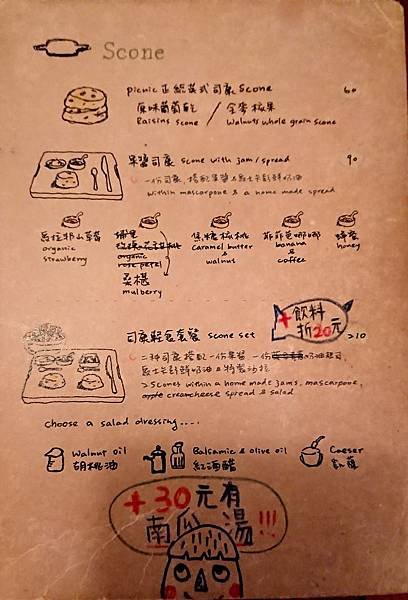 Scone
picnic 正統英式司康 Scone 60
原味葡萄乾 / 全麥核果
Raisins scone / Walnuts whole grain scone
果醬司康 scone with jam/spread 90
一份司康,搭配果醬&馬士卡彭鮮奶油
within mascarpone & a home made spread
馬拉邦山草莓
organic
strawberry
organic
rose petal
桑椹
mulberry
焦糖核桃
caramel butter
&
walnut
菲菲芭娜娜
banana
&
coffee
蜂蜜
honey
+飲料
折20元
司康輕食套餐 scone set 210
二種司康搭配一份果醬、一份奶油起司、
馬士卡彭鮮奶油&特製沙拉
2 Scones within a home made jams, mascarpone,
creamcheese spread & salad
choose a salad dressing....
Walnut oil
胡桃油
Balsamic & olive oil
紅酒醋
Caeser
凱薩
+30元有
南瓜湯!!!